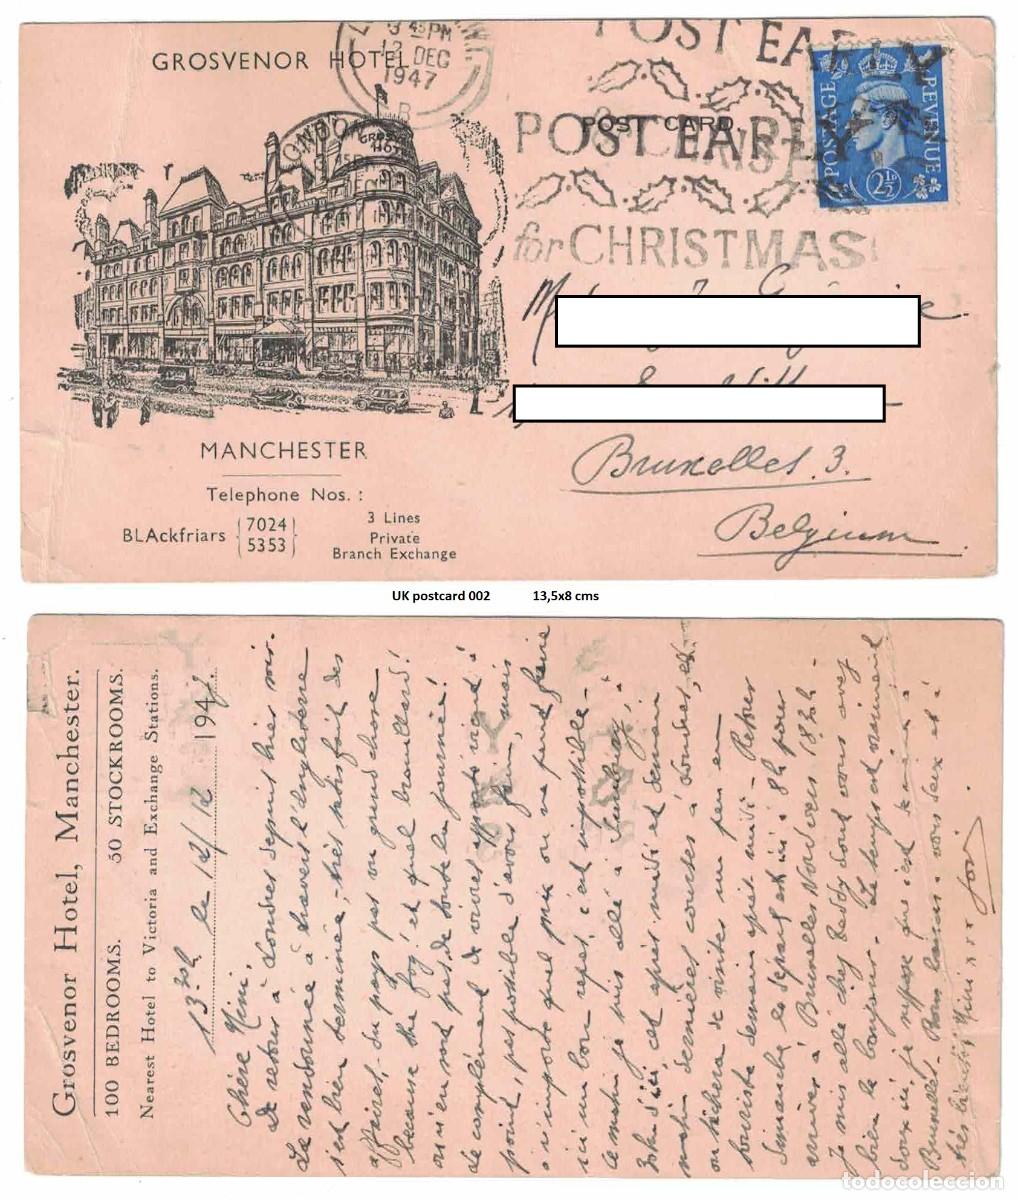 GROSVENOR HOTEL
3 45PM
12 DEC
1947
B
LONDON
POST EARLY
POST EARLY
for CHRISTMAS
POST CARD
POSTAGE
REVENUE
2½D
GROSVENOR
HOTEL
Bruxelles. 3.
Belgium
MANCHESTER
Telephone Nos. :
BLAckfriars {7024 5353} 3 Lines
Private
Branch Exchange
UK postcard 002 13,5x8 cms
Grosvenor Hotel, Manchester.
100 BEDROOMS. 50 STOCKROOMS.
Nearest Hotel to Victoria and Exchange Stations.
13.30h le 12/12 1947
Chère Mimi,
De retour à Londres depuis hier soir.
La randonnée à travers l'Angleterre
s'est bien terminée, très satisfait des
affaires, du pays pas vu grand chose
because the fog! et quel brouillard!
on n'en sort pas de toute la journée!
Le complément de vivres
point, pas possible d'avoir faim, mais
n'importe quel prix on ne peut faire
ici un bon repas, c'est impossible -
Ce matin je suis allé à
ici cet après midi et demain
matin dernières courses à Londres, et
on tâchera de visiter un peu en
touriste demain après midi - Retour
Dimanche, le départ est ici à 8h pour
arriver à Bruxelles Nord vers 18.30h -
Je suis allé chez Teddy dont vous avez
bien le bonjour. Le temps est vraiment
doux ici, je suppose que c'est le même à
Bruxelles. Bons baisers à vous deux et à
très bientôt Mimi xxx